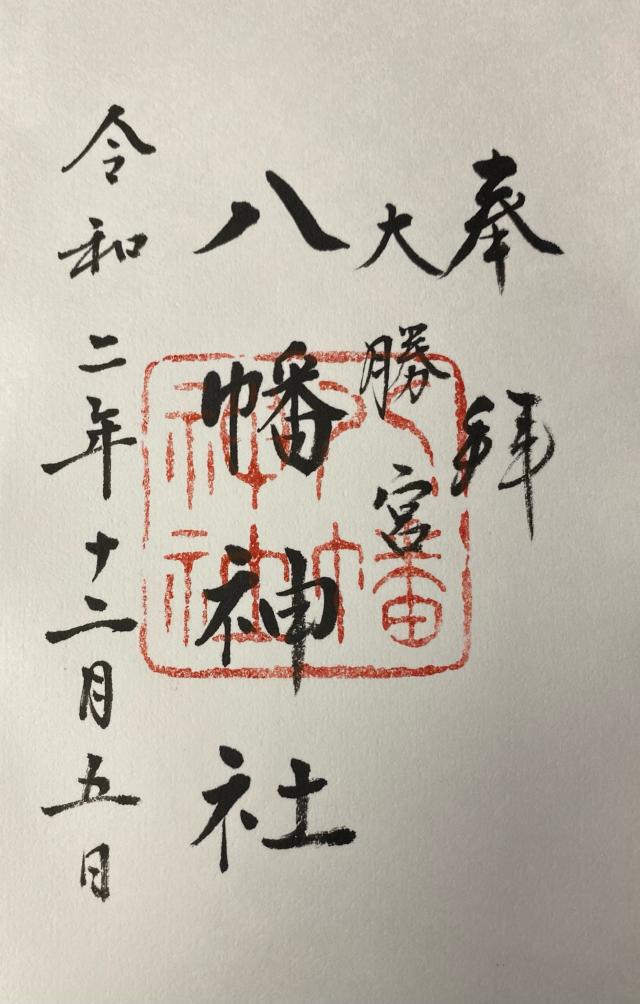 奉拝
大勝宮
八幡神社
令和二年十二月五日
八幡
神社